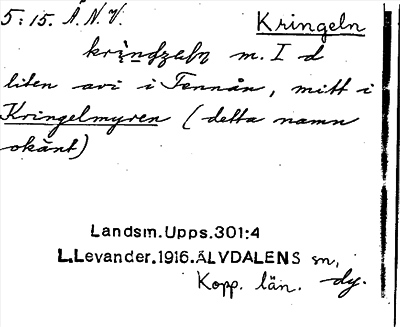 5:15. Ä.N.V. Kringeln
m. I d
liten avi i Tennån, mitt i
Kringelmyren (detta namn
okänt)
Landsm. Upps. 301:4
L. Levander. 1916. ÄLVDALENS sn,
Kopp. län. dy.